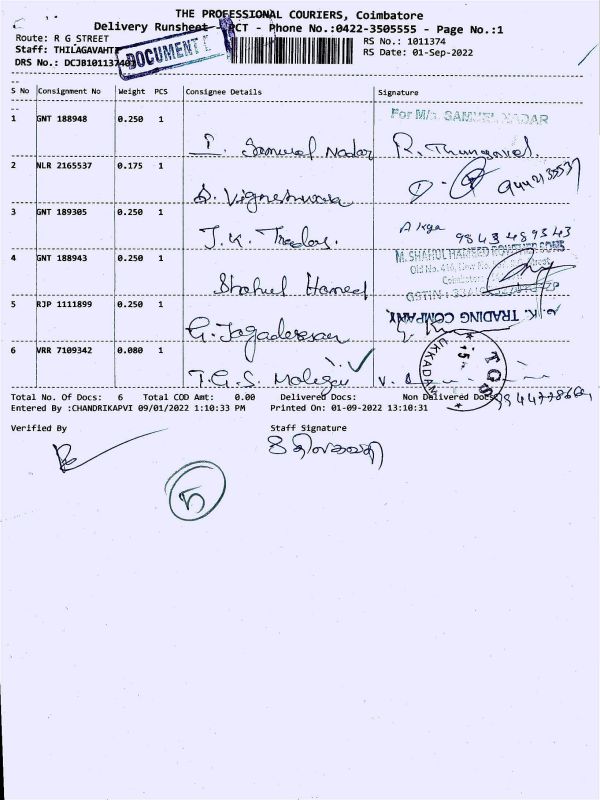 THE PROFESSIONAL COURIERS, Coimbatore
Delivery Runsheet - PCT - Phone No.:0422-3505555 - Page No.:1
Route: R G STREET
RS No.: 1011374
Staff: THILAGAVAHTI
DOCUMENT
RS Date: 01-Sep-2022
DRS No.: DCJB1011374
S No Consignment No Weight PCS Consignee Details Signature
For M/s. SAMUEL NADAR
1 GNT 188948 0.250 1
I. Samuel Nadar R. Thangavel.
2 NLR 2165537 0.175 1
S. Vigneshwara
3 GNT 189305 0.250 1
J.K. Traders. 9843489543
4 GNT 188943 0.250 1
M. SHAHUL HAMEED ROWTHER SONS
Old No. 416, New No.
Coimbatore
Shahul Hameed
GSTIN : 33A
5 RJP 1111899 0.250 1
K. TRADING COMPANY
G. Jagadeesan
6 VRR 7109342 0.080 1
TGS
UKKADAM
15
T.G.S.
Total No. Of Docs: 6 Total COD Amt: 0.00 Delivered Docs: Non Delivered Docs:
Entered By :CHANDRIKAPVI 09/01/2022 1:10:33 PM Printed On: 01-09-2022 13:10:31
Verified By Staff Signature
5